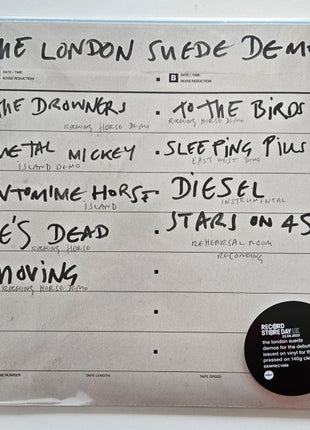 THE LONDON SUEDE DEMO
DATE / TIME
NOISE REDUCTION
B DATE / TIME
NOISE REDUCTION
THE DROWNERS
ROCKING HORSE DEMO
METAL MICKEY
ISLAND DEMO
NTOMIME HORSE
ISLAND
E'S DEAD
ROCKING HORSE
MOVING
ROCKING HORSE DEMO
TO THE BIRDS
ROCKING HORSE DEMO
SLEEPING PILLS
EAST WEST DEMO
DIESEL
INSTRUMENTAL
STARS ON 45
REHEARSAL ROOM
RECORDING
NUMBER
TAPE LENGTH
TAPE SPEED
RECORD
STORE DAY UK
22.04.2023
the london suede
demos for the debut
issued on vinyl for th
pressed on 140g cle
DEMREC1099